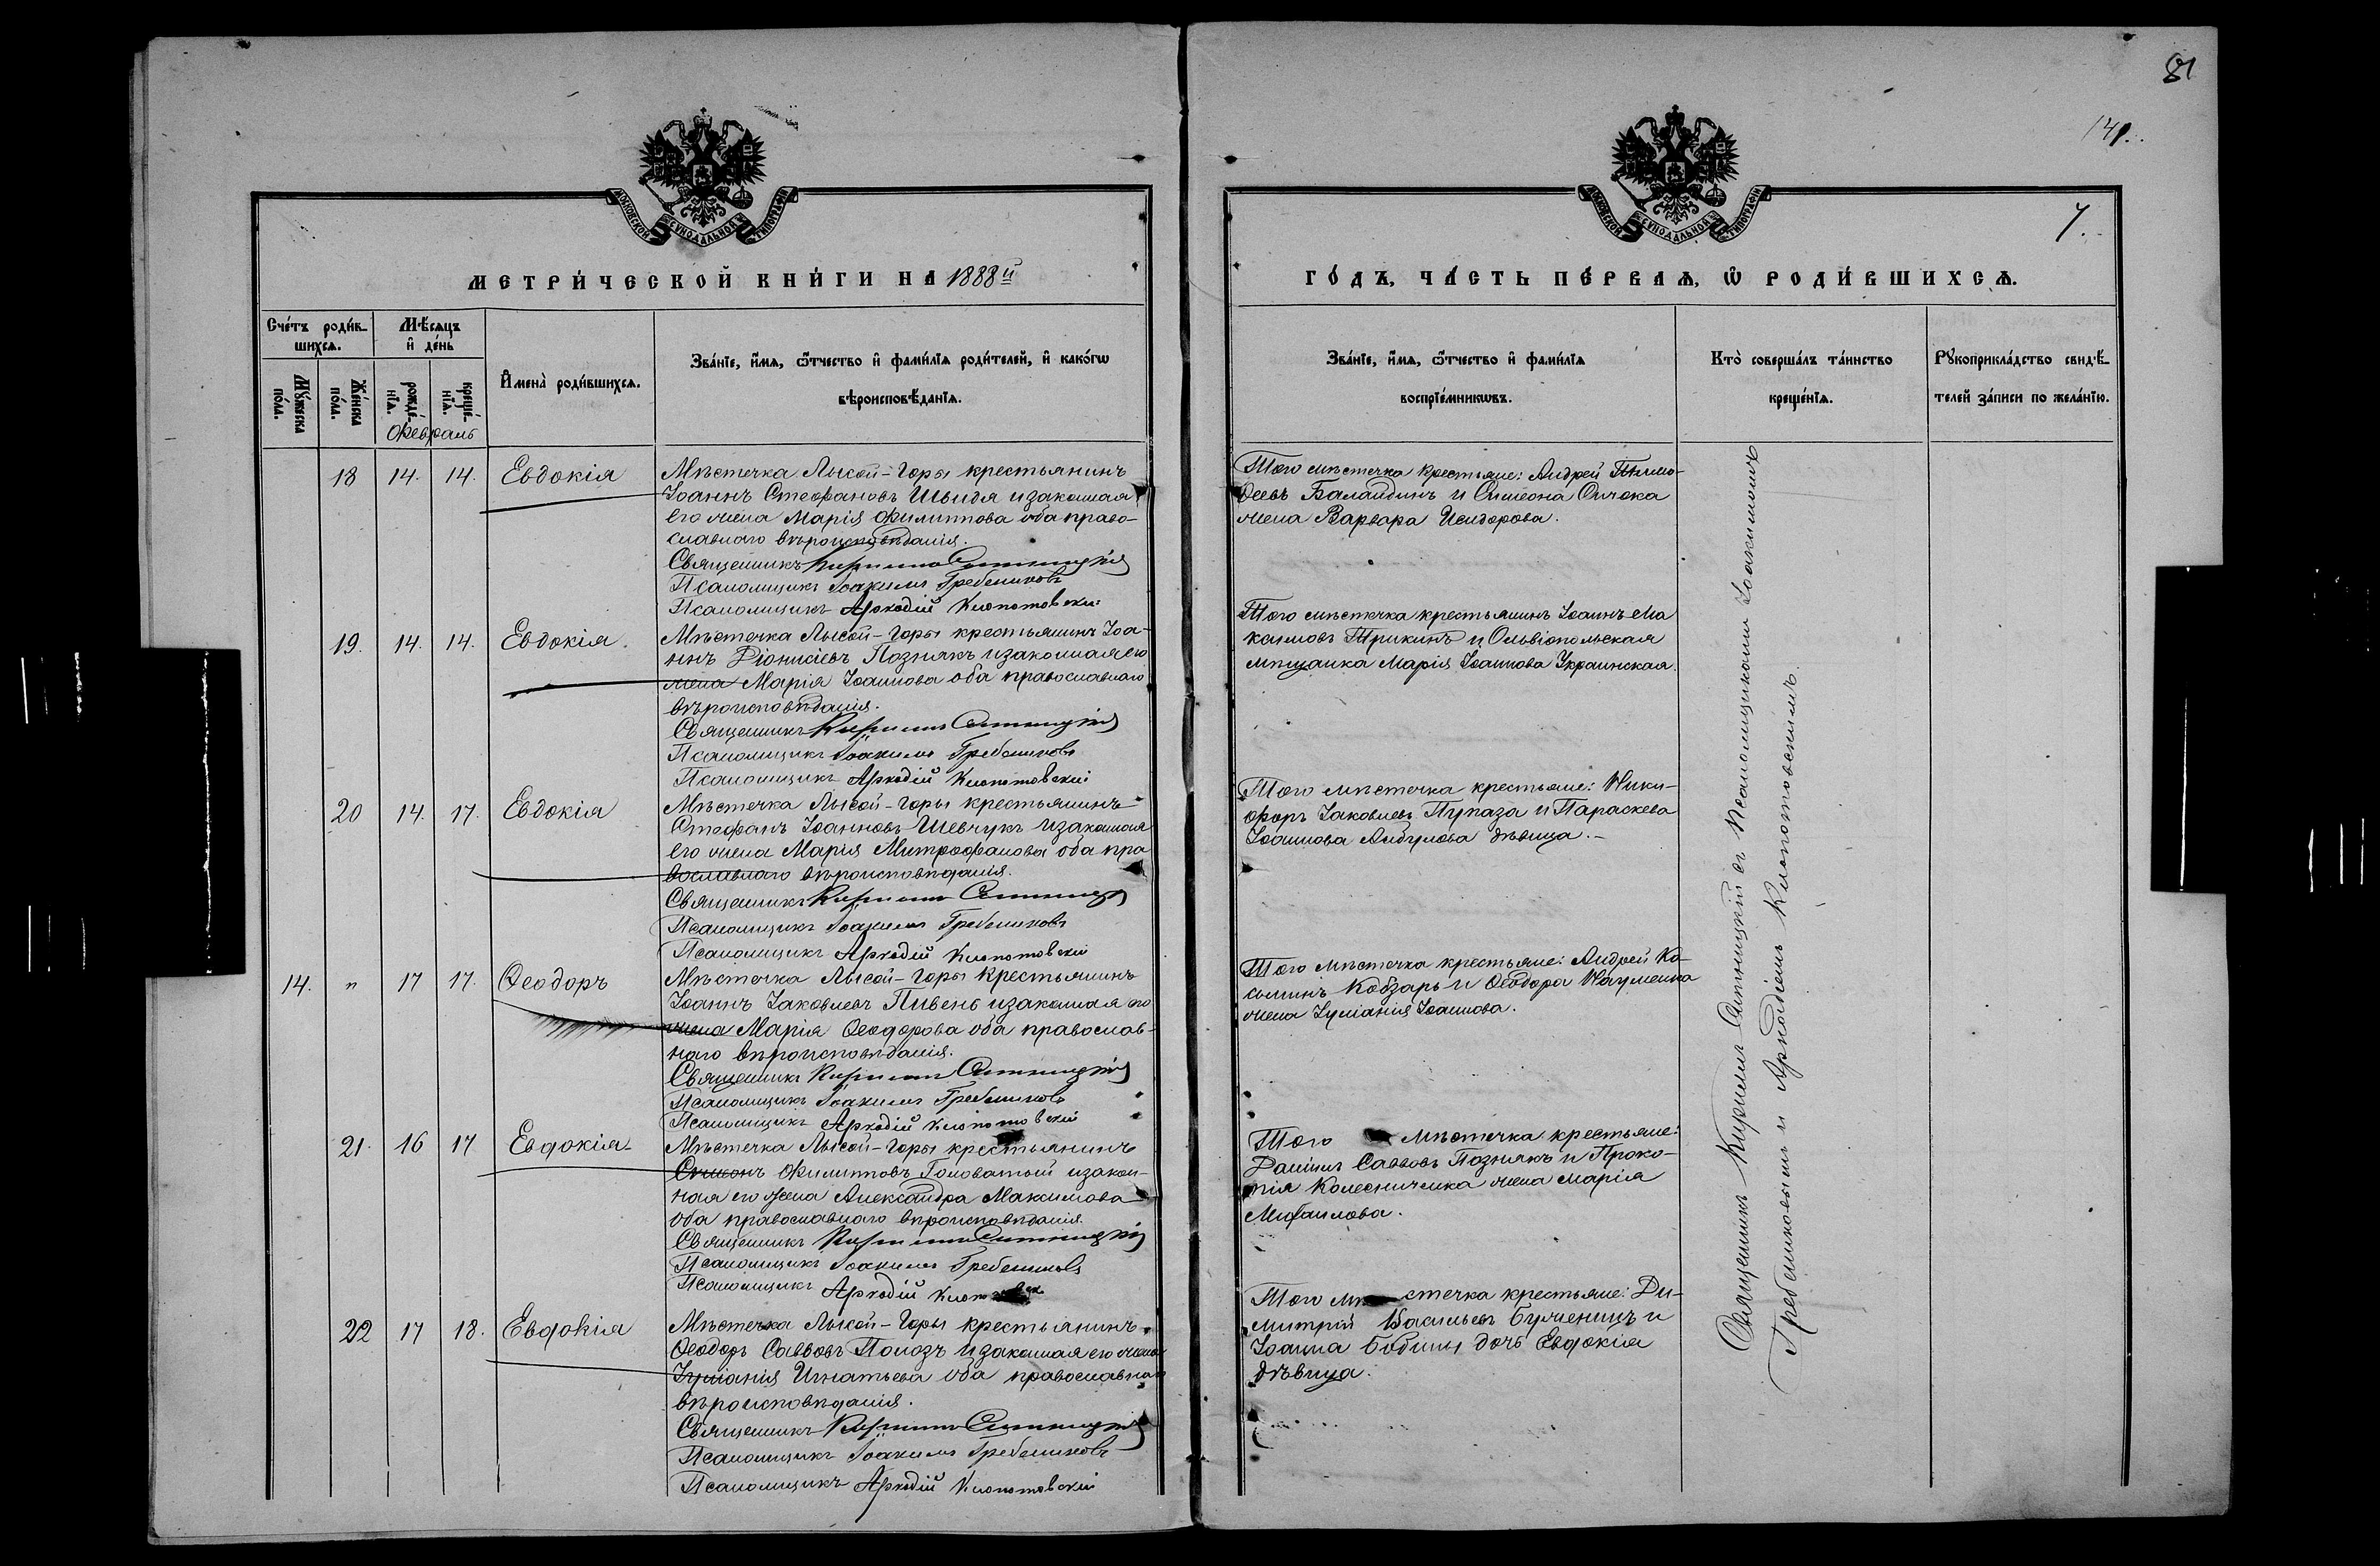 81
141.
7.
МОСКОВСКОЙ СУНОДАЛЬНОЙ ТИПОГРАФІИ
МОСКОВСКОЙ СУНОДАЛЬНОЙ ТИПОГРАФІИ
МЕТРИ́ЧЕСКОЙ КНИ́ГИ НА 1888й
ГО́ДЪ, ЧА́СТЬ ПЕ́РВАѦ, Ѿ РОДИ́ВШИХСѦ.
Сче́тъ роди́в-
шихсѧ.
Мѣ́сѧцъ
и҆ де́нь
Мꙋ́жеска
по́ла.
Же́нска
по́ла.
рожде́-
нїѧ.
креще́-
нїѧ.
Февраль
И҆мена̀ роди́вшихсѧ.
Зва́нїе, и҆́мѧ, ѻ҆́тчество и҆ фами́лїѧ роди́телей, и҆ како́гѡ
вѣроисповѣ́данїѧ.
Зва́нїе, и҆́мѧ, ѻ҆́тчество и҆ фами́лїѧ
воспрїе́мникѡвъ.
Кто̀ соверша́лъ та́инство
креще́нїѧ.
Рꙋкоприкла́дство свидѣ́-
телей за́писи по жела́нїю.
18 14. 14. Евдокія
Мѣстечка Лысой-Горы крестьянинъ
Іоаннъ Стефановъ Швидя и законная
его жена Марія Филиппова оба право-
славнаго вѣроисповѣданія.
Священникъ Кириллъ Ситницкій
Псаломщикъ Іоакимъ Гребениковъ
Псаломщикъ Аркадій Клопотовскій
Того мѣстечка крестьяне: Андрей Тимо-
феевъ Баландинъ и Симеона
жена Варвара Исидорова.
19. 14. 14. Евдокія.
Мѣстечка Лысой-Горы крестьянинъ Іоа-
ннъ Діонисіевъ Познякъ и законная его
жена Марія Іоаннова оба православнаго
вѣроисповѣданія.
Священникъ Кириллъ Ситницкій
Псаломщикъ Іоакимъ Гребениковъ
Псаломщикъ Аркадій Клопотовскій
Того мѣстечка крестьянинъ Іоаннъ Ма
каимовъ Трикинъ и Ольвіопольская
мѣщанка Марія Іоаннова Украинская.
20 14. 17. Евдокія
Мѣстечка Лысой-Горы крестьянинъ
Стефанъ Іоанновъ Шевчукъ и законная
его жена Марія Митрофанова оба пра
вославнаго вѣроисповѣданія.
Священникъ Кириллъ Ситницкій
Псаломщикъ Іоакимъ Гребениковъ
Псаломщикъ Аркадій Клопотовскій
Того мѣстечка крестьяне: Ники-
форъ Іаковлевъ Пугаза и Параскева
Іоаннова дѣвица.-
14. " 17 17. Ѳеодоръ
Мѣстечка Лысой-Горы крестьянинъ
Іоаннъ Іаковлевъ Пивень и законная его
жена Марія Ѳеодорова оба православ-
наго вѣроисповѣданія.
Священникъ Кириллъ Ситницкій
Псаломщикъ Іоакимъ Гребениковъ
Псаломщикъ Аркадій Клопотовскій
Того мѣстечка крестьяне: Андрей Ко-
сьминъ Кобзарь и Ѳеодора Науменка
жена Іуліанія Іоаннова.
21. 16 17 Евдокія
Мѣстечка Лысой-Горы крестьянинъ
Симеонъ Филипповъ Головатый и закон-
ная его жена Александра Максимова
оба православнаго вѣроисповѣданія.
Священникъ Кириллъ Ситницкій
Псаломщикъ Іоакимъ Гребениковъ
Псаломщикъ Аркадій
Того мѣстечка крестьяне:
Даніилъ Саввовъ Познякъ и Проко-
пія Колесниченка жена Марія
Михаилова.
22 17 18. Евдокія
Мѣстечка Лысой-Горы крестьянинъ
Ѳеодоръ Саввовъ Полозъ и законная его жена
Іуліанія Игнатьева оба православнаго
вѣроисповѣданія.
Священникъ Кириллъ Ситницкій
Псаломщикъ Іоакимъ Гребениковъ
Псаломщикъ Аркадій Клопотовскій
Того мѣстечка крестьяне: Ди-
митрій Васильевъ и
Іоанна Бобины дочь Евдокія
дѣвица.
Священникъ Кириллъ Ситницкій съ Псаломщиками Іоакимомъ
Гребениковымъ и Аркадіемъ Клопотовскимъ.